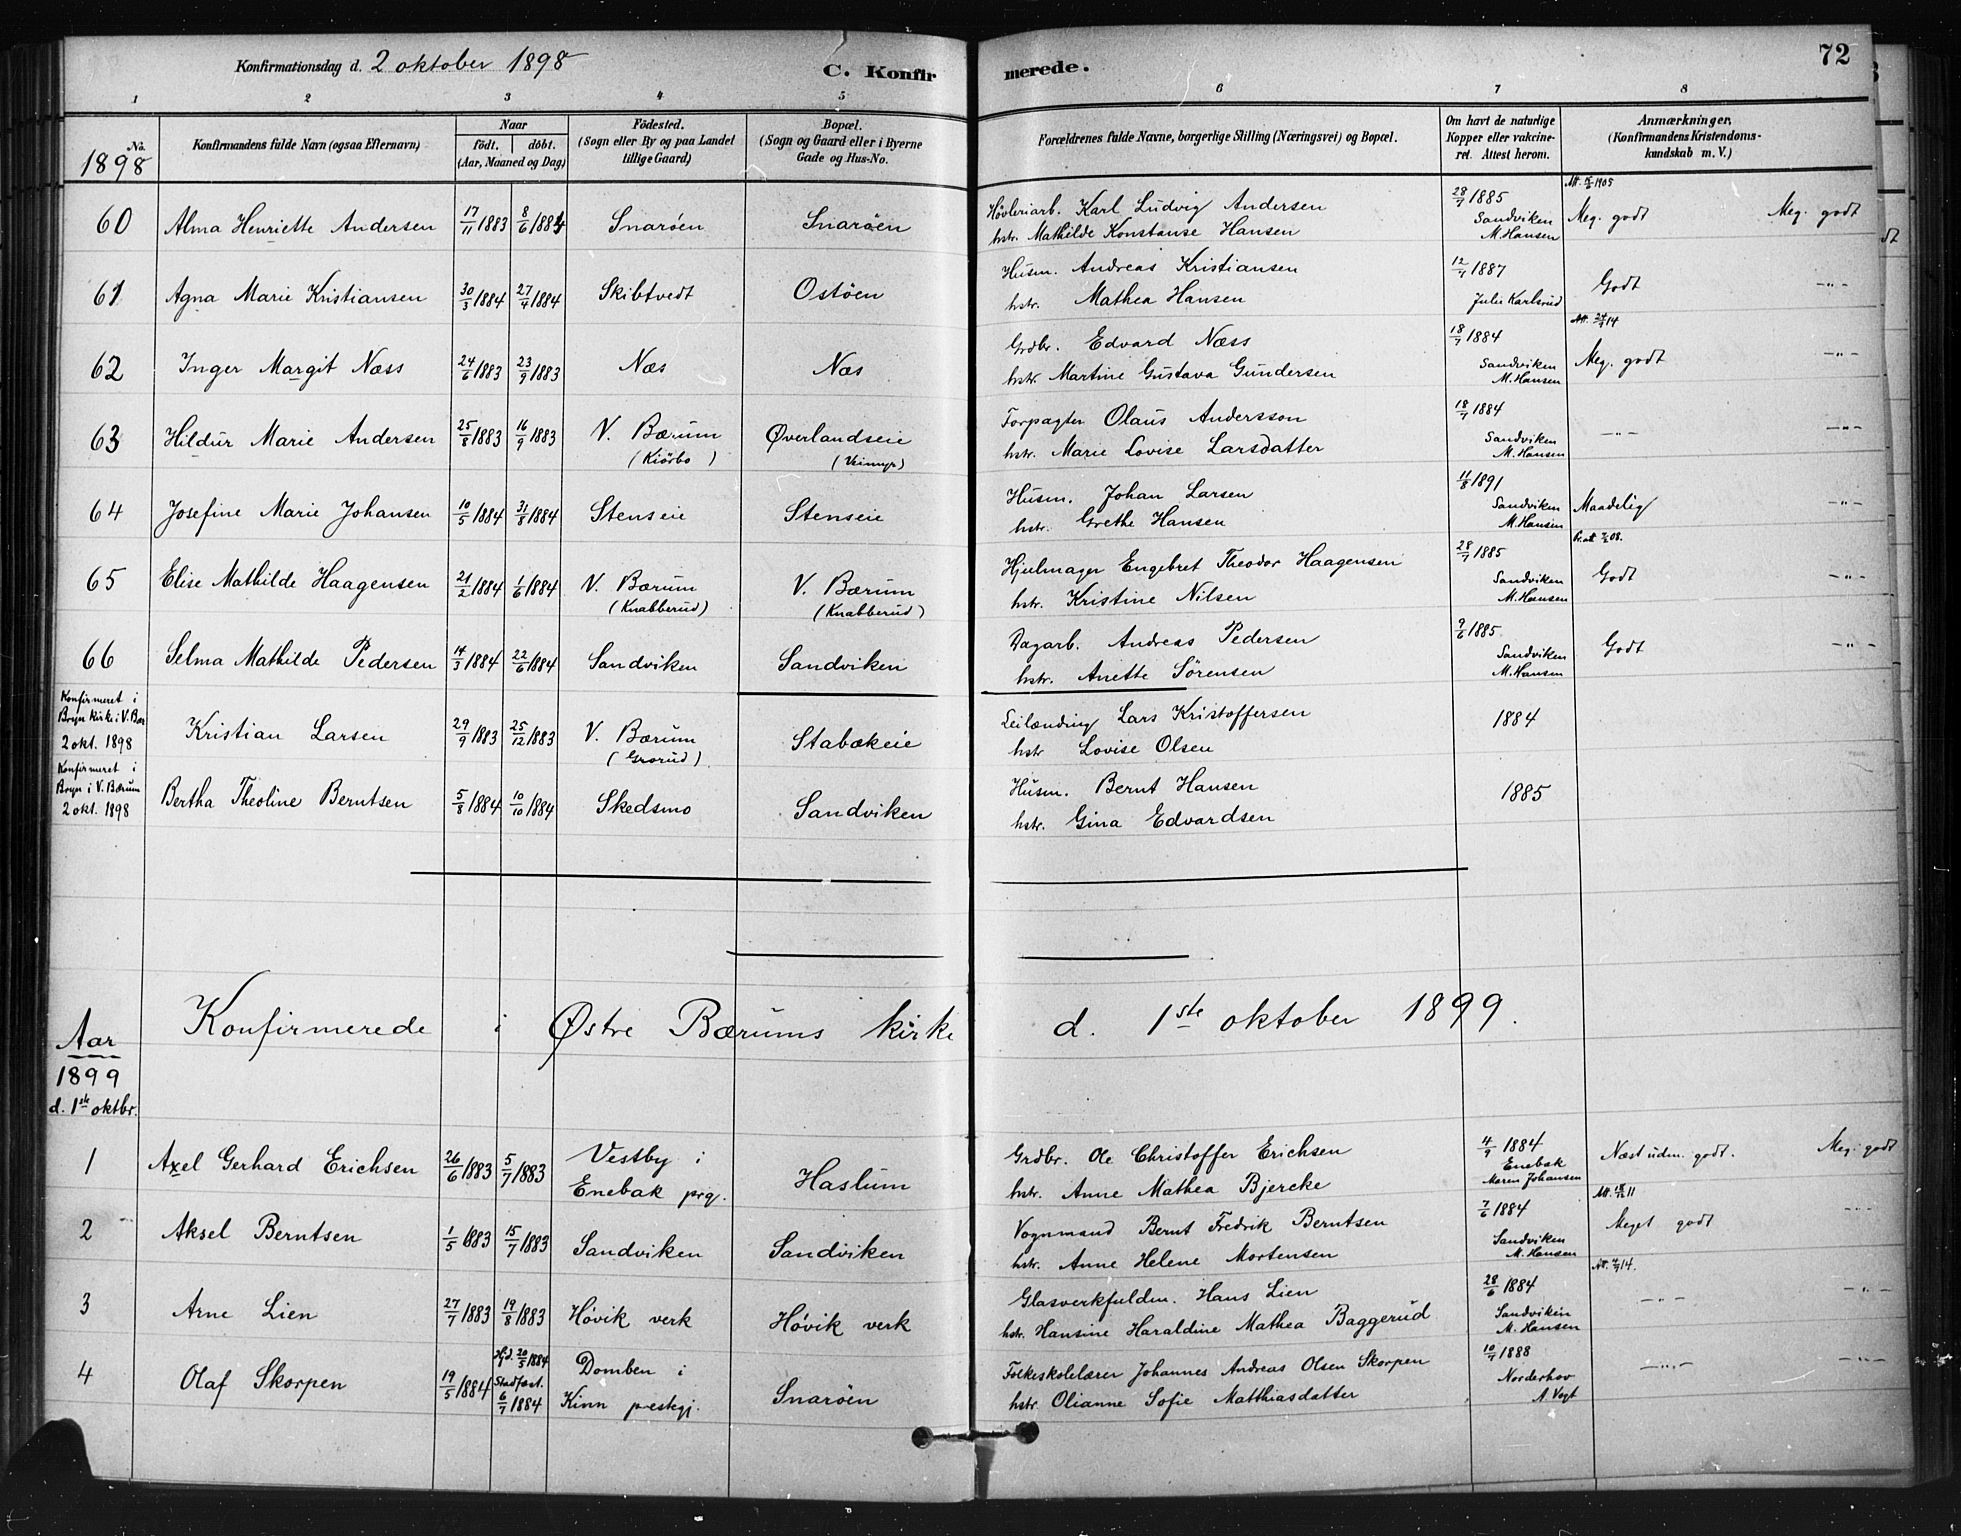 Konfirmationsdag d. 2 oktober 1898
C. Konfirmerede.
72
1 2 3 4 5 6 7 8
No.
1898
Konfirmandens fulde Navn (ogsaa Efternavn)
Naar
født. døbt.
(Aar, Maaned og Dag)
Fødested.
(Sogn eller By og paa Landet
tillige Gaard)
Bopæl.
(Sogn og Gaard eller i Byerne
Gade og Hus-No.
Forældrenes fulde Navne, borgerlige Stilling (Næringsvei) og Bopæl.
Om havt de naturlige
Kopper eller vakcine-
ret. Attest herom.
Anmærkninger,
(Konfirmandens Kristendoms-
kundskab m. V.)
60 Alma Henriette Andersen 17/11 1883 8/6 1884 Snarøen Snarøen
Høvleriarb. Karl Ludvig Andersen
hstr. Mathilde Konstanse Hansen
28/7 1885
Sandviken
M. Hansen
Meg. godt Meg. godt
61 Agna Marie Kristiansen 30/3 1884 27/4 1884 Skibtvedt Ostøen
Husm. Andreas Kristiansen
hstr. Mathea Hansen
12/7 1887
Julie Karlsrud
Godt -"-
62 Inger Margit Næss 24/6 1883 23/9 1883 Næs Næs
Grdbr. Edvard Næss
hstr. Martine Gustava Gundersen
18/7 1884
Sandviken
M. Hansen
Meg. godt -"-
63 Hildur Marie Andersen 25/8 1883 16/9 1883 V. Bærum Øverlandseie
(Kiørbo)
Forpagter Olaus Andersson
hstr. Marie Lovise Larsdatter
18/7 1884
Sandviken
M. Hansen
-"- -"-
64 Josefine Marie Johansen 10/5 1884 31/8 1884 Stenseie Stenseie
Husm. Johan Larsen
hstr. Grethe Hansen
11/8 1891
Sandviken
M. Hansen
Maadelig -"-
65 Elise Mathilde Haagensen 21/2 1884 1/6 1884 V. Bærum V. Bærum
(Knabberud) (Knabberud)
Hjulmager Engebret Theodor Haagensen
hstr. Kristine Nilsen
28/7 1885
Sandviken
M. Hansen
Godt -"-
66 Selma Mathilde Pedersen 14/3 1884 22/6 1884 Sandviken Sandviken
Dagarb. Andreas Pedersen
hstr. Anette Sørensen
9/6 1885
Sandviken
M. Hansen
Godt -"-
Konfirmeret i
Bryn kirke i V. Bær
2 okt. 1898
Kristian Larsen 29/9 1883 25/12 1883 V. Bærum Stabækeie
(Grorud)
Leilænding Lars Kristoffersen
hstr Lovise Olsen
1884
Konfirmeret i
Bryn i V. Bærum
2 okt. 1898
Bertha Theoline Berntsen 5/8 1884 10/10 1884 Skedsmo Sandviken
Husm. Bernt Hansen
hstr. Gina Edvardsen
1885
Konfirmerede i Østre Bærums kirke d. 1ste oktober 1899.
Aar
1899
d. 1ste oktbr.
1 Axel Gerhard Erichsen 26/6 1883 5/7 1883 Vestby i
Enebak prg. Haslum
Grdbr. Ole Christoffer Erichsen
hstr. Anne Mathea Bjercke
4/9 1884
Enebak
Maren Johansen
Næst udm. godt. Meg. godt
2 Aksel Berntsen 1/5 1883 15/7 1883 Sandviken Sandviken
Vognmand Bernt Fredrik Berntsen
hstr. Anne Helene Mortensen
7/6 1884
Sandviken
M. Hansen
Meget godt -"-
3 Arne Lien 27/7 1883 19/8 1883 Høvik verk Høvik verk
Glasverkfuldm. Hans Lien
hstr. Hansine Haraldine Mathea Baggerud
28/6 1884
Sandviken
M. Hansen
-"- -"-
4 Olaf Skorpen 19/5 1884 Hjd. 20/5 1884
Stadfæst.
6/7 1884
Domben i
Kinn prestegj. Snarøen
Folkeskolelærer Johannes Andreas Olsen Skorpen
hstr. Olianne Sofie Matthiasdatter
10/7 1888
Norderhov
A Vogt
-"- -"-